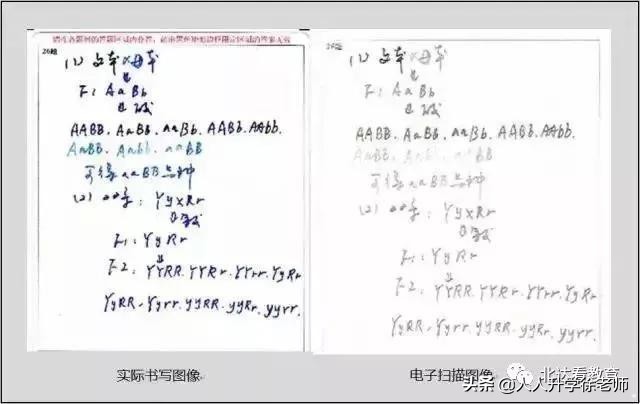 请在各题目的答题区域内作答，超出黑色矩形边框限定区域的答案无效
26题
(1) 父本×母本
F1: AaBb
AABB. AaBb. aaBb. AABb. AAbb.
AaBB. Aabb. aaBB
可得aaBB品种
(2)
: YyxRr
F1: YyRr
F2: YYRR. YYRr. YYrr. YyRr
YyRR. Yyrr. yyRR. yyRr. yyrr.
26题
(1) 父本×母本
F1: AaBb
AABB. AaBb. aaBb. AABb. AAbb.
AaBB. Aabb. aaBB
可得aaBB品种
(2)
: YyxRr
F1: YyRr
F2: YYRR. YYRr. YYrr. YyRr
YyRR. Yyrr. yyRR. yyRr. yyrr.
实际书写图像
电子扫描图像
北达看教育
头条@人人升学徐老师